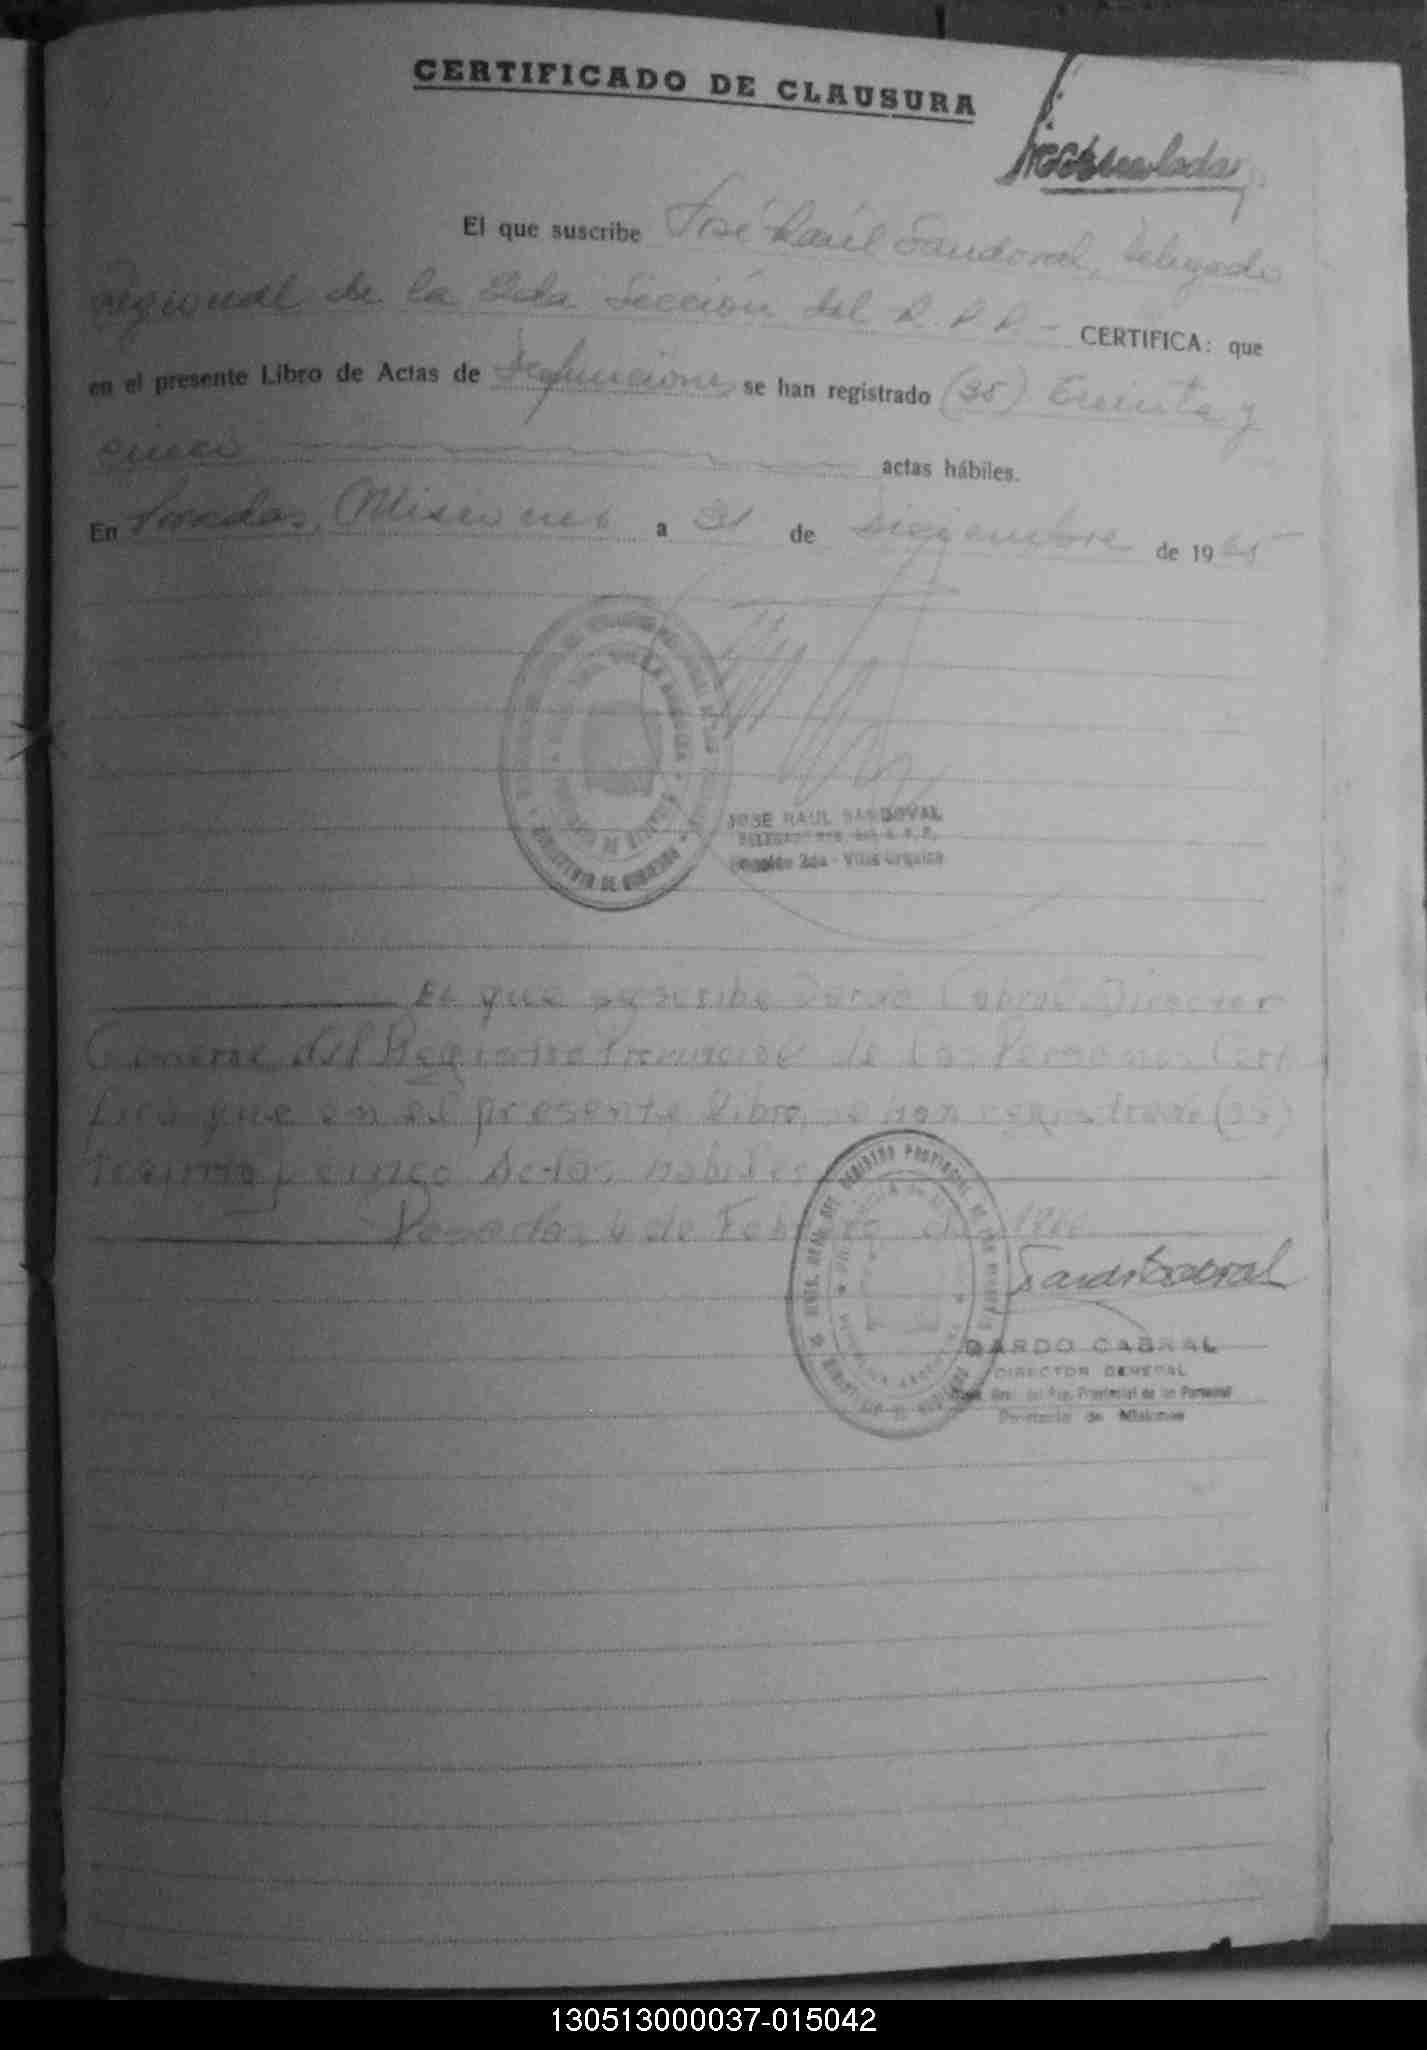 CERTIFICADO DE CLAUSURA
El que suscribe José Raúl Sandoval, Delegado
regional de la 2da Sección del R.P.P. - CERTIFICA: que
en el presente Libro de Actas de Defunciones se han registrado (35) Treinta y
cinco actas hábiles.
En Posadas, Misiones a 31 de Diciembre de 1965
JOSE RAUL SANDOVAL
Sección 2da - Villa Urquiza
MINISTERIO DE GOBIERNO
El que suscribe Dardo Cabral Director
General del Registro Provincial de las Personas Certi
fica que en el presente libro, se han registrado (35)
treinta y cinco Actas habiles
Posadas, 4 de Febrero de 1966
DIREC. GRAL. DEL REGISTRO PROVINCIAL DE LAS PERSONAS
Dardo Cabral
DARDO CABRAL
DIRECTOR GENERAL
Gral. del Reg. Provincial de las Personas
Provincia de Misiones
130513000037-015042